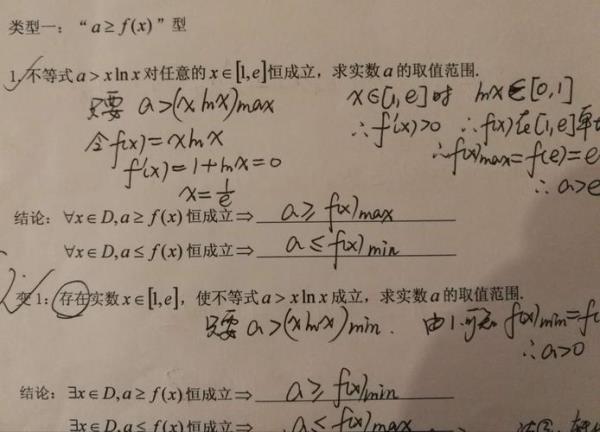 类型一：“a≥f(x)”型
1.不等式a>xlnx对任意的x∈[1,e]恒成立，求实数a的取值范围.
只要 a>(xlnx)max
令f(x)=xlnx
f'(x)=1+lnx=0
x=1/e
x∈[1,e]时 lnx∈[0,1]
∴f'(x)>0 ∴f(x)在[1,e]单
∴f(x)max=f(e)=e
∴a>e
结论：∀x∈D,a≥f(x)恒成立⇒ a≥f(x)max
∀x∈D,a≤f(x)恒成立⇒ a≤f(x)min
变1：存在实数x∈[1,e]，使不等式a>xlnx成立，求实数a的取值范围.
只要 a>(xlnx)min. 由1.可知 f(x)min=f(
∴a>0
结论：∃x∈D,a≥f(x)恒成立⇒ a≥f(x)min
∃x∈D,a≤f(x)恒成立⇒ a≤f(x)max